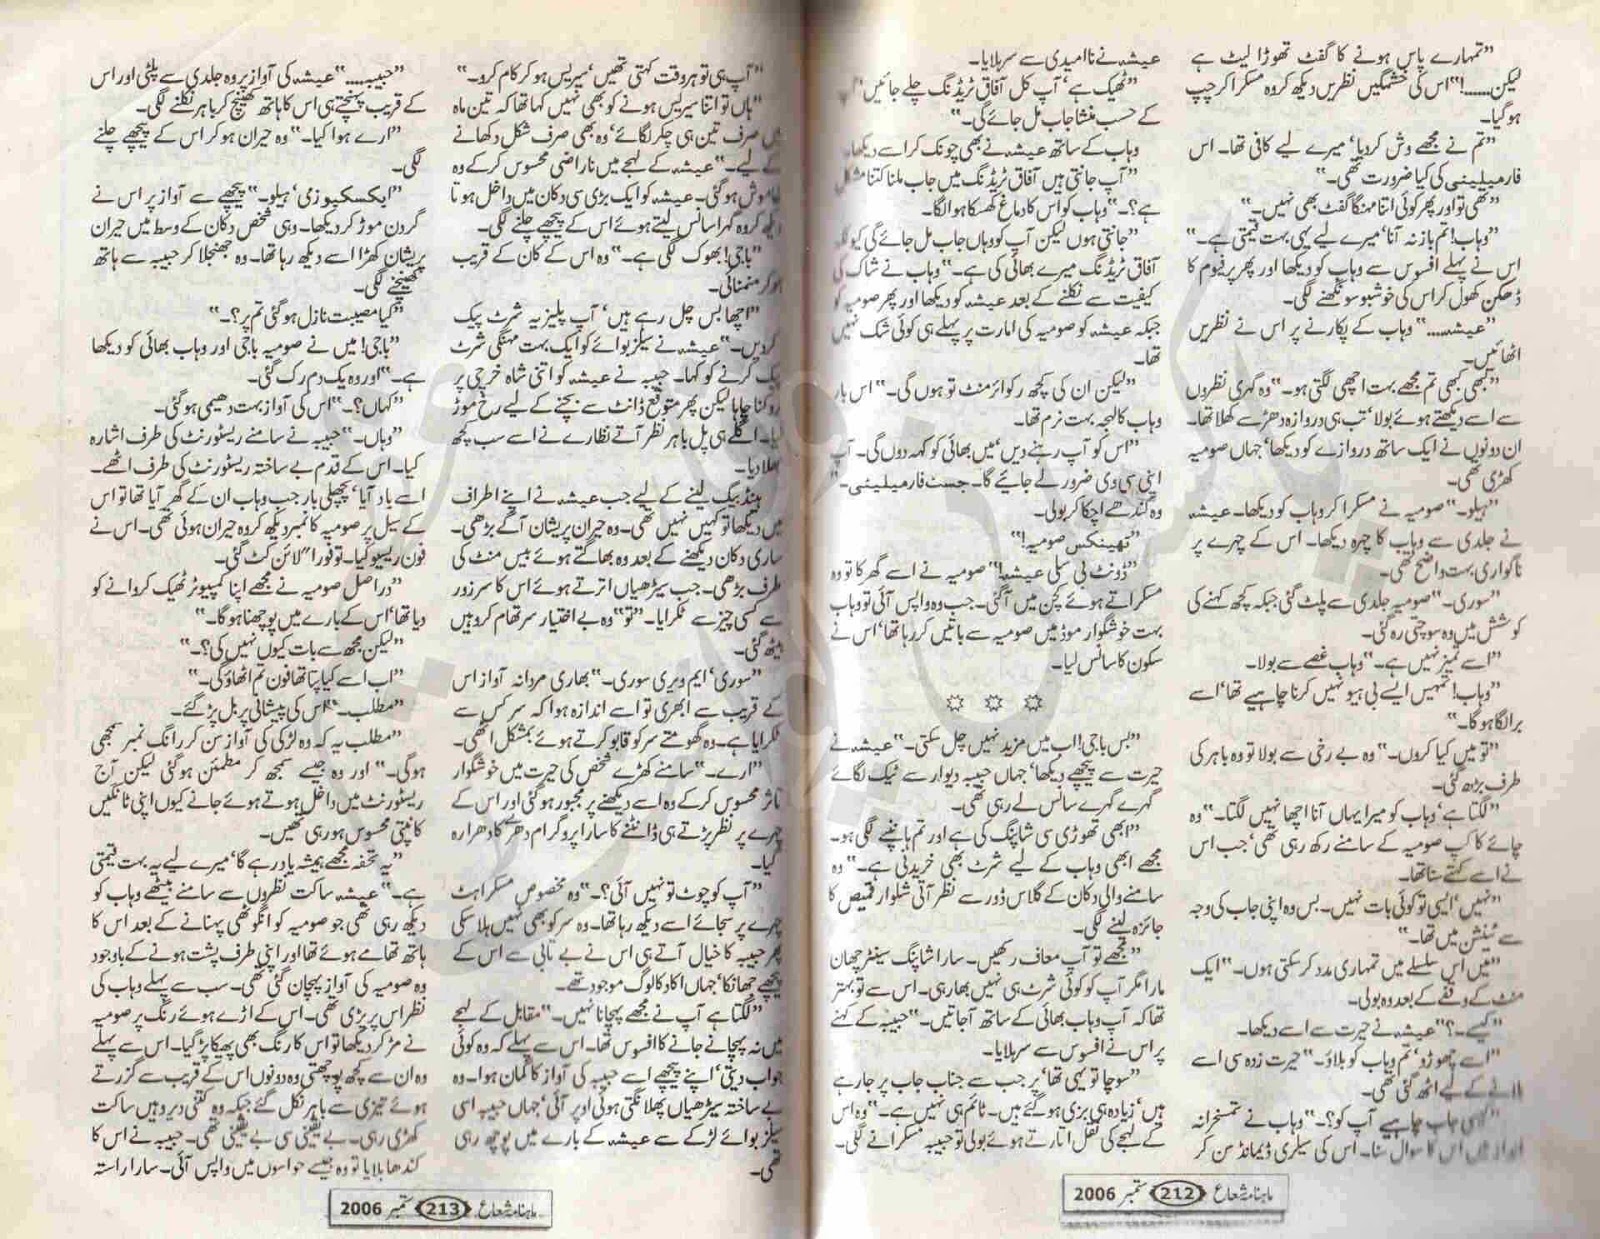 ”تمہارے پاس ہونے کا گفٹ تھوڑا لیٹ ہے
لیکن......!“ اس کی خشمگیں نظریں دیکھ کر وہ مسکرا کر چپ
ہو گیا۔
”تم نے مجھے وش کر دیا‘ میرے لیے کافی تھا۔ اس
فارمیلیٹی کی کیا ضرورت تھی۔“
”تھی تو اور پھر کوئی اتنا مہنگا گفٹ بھی نہیں۔“
”وہاب! تم باز نہ آنا‘ میرے لیے یہی بہت قیمتی ہے۔“
اس نے پہلے افسوس سے وہاب کو دیکھا اور پھر پرفیوم کا
ڈھکن کھول کر اس کی خوشبو سونگھنے لگی۔
”عیشہ....“ وہاب کے پکارنے پر اس نے نظریں
اٹھائیں۔
”کبھی کبھی تم مجھے بہت اچھی لگتی ہو۔“ وہ گہری نظروں
سے اسے دیکھتے ہوئے بولا‘ تب ہی دروازہ دھڑ سے کھلا تھا۔
ان دونوں نے ایک ساتھ دروازے کو دیکھا‘ جہاں صومیہ
کھڑی تھی۔
”ہیلو۔“ صومیہ نے مسکرا کر وہاب کو دیکھا۔ عیشہ
نے جلدی سے وہاب کا چہرہ دیکھا۔ اس کے چہرے پر
ناگواری بہت واضح تھی۔
”سوری۔“ صومیہ جلدی سے پلٹ گئی جبکہ کچھ کہنے کی
کوشش میں وہ سوچتی رہ گئی۔
”اسے تمیز نہیں ہے۔“ وہاب غصے سے بولا۔
”وہاب! تمہیں ایسے بی ہیو نہیں کرنا چاہیے تھا‘ اسے
برا لگا ہو گا۔“
”تو میں کیا کروں۔“ وہ بے رخی سے بولا تو وہ باہر کی
طرف بڑھ گئی۔
”لگتا ہے‘ وہاب کو میرا یہاں آنا اچھا نہیں لگتا۔“ وہ
چائے کا کپ صومیہ کے سامنے رکھ رہی تھی‘ جب اس
نے اسے کہتے سنا تھا۔
”نہیں‘ ایسی تو کوئی بات نہیں۔ بس وہ اپنی جاب کی وجہ
سے ٹینشن میں تھا۔“
”میں اس سلسلے میں تمہاری مدد کر سکتی ہوں۔“ ایک
منٹ کے وقفے کے بعد وہ بولی۔
”کیسے۔؟“ عیشہ نے حیرت سے اسے دیکھا۔
”اسے چھوڑو‘ تم وہاب کو بلاؤ۔“ حیرت زدہ سی اسے
بلانے کے لیے اٹھ گئی تھی۔
”کیسی جاب چاہیے آپ کو؟۔“ وہاب نے تمسخرانہ
انداز میں اس کا سوال سنا۔ اس کی سیلری ڈیمانڈ سن کر
عیشہ نے ناامیدی سے سر ہلایا۔
”ٹھیک ہے‘ آپ کل آفاق ٹریڈنگ چلے جائیں‘ آپ
کے حسب منشا جاب مل جائے گی۔“
وہاب کے ساتھ عیشہ نے بھی چونک کر اسے دیکھا۔
”آپ جانتی ہیں آفاق ٹریڈنگ میں جاب ملنا کتنا مشکل
ہے؟۔“ وہاب کو اس کا دماغ کھسکا ہوا لگا۔
”جانتی ہوں لیکن آپ کو وہاں جاب مل جائے گی کیونکہ
آفاق ٹریڈنگ میرے بھائی کی ہے۔“ وہاب نے شاک کی
کیفیت سے نکلنے کے بعد عیشہ کو دیکھا اور پھر صومیہ کو
جبکہ عیشہ کو صومیہ کی امارت پر پہلے ہی کوئی شک نہیں
تھا۔
”لیکن ان کی کچھ رکوائرمنٹ تو ہوں گی۔“ اس بار
وہاب کا لہجہ بہت نرم تھا۔
”اس کو آپ رہنے دیں‘ میں بھائی کو کہہ دوں گی۔ آپ
اپنی سی وی ضرور لے جائیے گا۔ جسٹ فارمیلیٹی۔“
وہ کندھے اچکا کر بولی۔
”تھینکس صومیہ!“
”ڈونٹ بی سلی عیشہ!“ صومیہ نے اسے گھر کا تو وہ
مسکراتے ہوئے کچن میں آ گئی۔ جب وہ واپس آئی تو وہاب
بہت خوشگوار موڈ میں صومیہ سے باتیں کر رہا تھا‘ اس نے
سکون کا سانس لیا۔
☼ ☼ ☼
”بس باجی! اب میں مزید نہیں چل سکتی۔“ عیشہ نے
حیرت سے پیچھے دیکھا‘ جہاں حبیبہ دیوار سے ٹیک لگائے
گہرے گہرے سانس لے رہی تھی۔
”ابھی تھوڑی سی شاپنگ کی ہے اور تم ہانپنے لگی ہو۔
مجھے ابھی وہاب کے لیے شرٹ بھی خریدنی ہے۔“ وہ
سامنے والی دکان کے گلاس ڈور سے نظر آتی شلوار قمیص کا
جائزہ لینے لگی۔
”مجھے تو آپ معاف رکھیں۔ سارا شاپنگ سینٹر چھان
مارا مگر آپ کو کوئی شرٹ ہی نہیں بھا رہی۔ اس سے تو بہتر
تھا کہ آپ وہاب بھائی کے ساتھ آ جاتیں۔“ حبیبہ کے کہنے
پر اس نے افسوس سے سر ہلایا۔
”سوچا تو یہی تھا‘ پر جب سے جناب جاب پر جا رہے
ہیں‘ زیادہ ہی بزی ہو گئے ہیں۔ ٹائم ہی نہیں ہے۔“ وہ اس
کے لہجے کی نقل اتارتے ہوئے بولی تو حبیبہ مسکرانے لگی۔
ماہنامہ شعاع 212 ستمبر 2006
”آپ ہی تو ہر وقت کہتی تھیں‘ سیریس ہو کر کام کرو۔“
”ہاں تو اتنا سیریس ہونے کو بھی نہیں کہا تھا کہ تین ماہ
میں صرف تین ہی چکر لگائے‘ وہ بھی صرف شکل دکھانے
کے لیے۔“ عیشہ کے لہجے میں ناراضی محسوس کر کے وہ
خاموش ہو گئی۔ عیشہ کو ایک بڑی سی دکان میں داخل ہوتا
دیکھ کر وہ گہرا سانس لیتے ہوئے اس کے پیچھے چلنے لگی۔
”باجی! بھوک لگی ہے۔“ وہ اس کے کان کے قریب
ہو کر منمنائی۔
”اچھا بس چل رہے ہیں‘ آپ پلیز یہ شرٹ پیک
کر دیں۔“ عیشہ نے سیلز بوائے کو ایک بہت مہنگی شرٹ
پیک کرنے کو کہا۔ حبیبہ نے عیشہ کو اتنی شاہ خرچی پر
روکنا چاہا لیکن پھر متوقع ڈانٹ سے بچنے کے لیے رخ موڑ
لیا۔ اگلے ہی پل باہر نظر آتے نظارے نے اسے سب کچھ
بھلا دیا۔
ہینڈ بیگ لینے کے لیے جب عیشہ نے اپنے اطراف
میں دیکھا تو کہیں نہیں تھی۔ وہ حیران پریشان آگے بڑھی۔
ساری دکان دیکھنے کے بعد وہ بھاگتے ہوئے بیس منٹ کی
طرف بڑھی۔ جب سیڑھیاں اترتے ہوئے اس کا سر زور
سے کسی چیز سے ٹکرایا۔ ”تو“ وہ بے اختیار سر تھام کر وہیں
بیٹھ گئی۔
”سوری‘ ایم ویری سوری۔“ بھاری مردانہ آواز اس
کے قریب سے ابھری تو اسے اندازہ ہوا کہ سر کس سے
ٹکرایا ہے۔ وہ گھومتے سر کو قابو کرتے ہوئے بمشکل اٹھی۔
”ارے۔“ سامنے کھڑے شخص کی حیرت میں خوشگوار
تاثر محسوس کر کے وہ اسے دیکھنے پر مجبور ہو گئی اور اس کے
چہرے پر نظر پڑتے ہی ڈانٹنے کا سارا پروگرام دھرے کا دھرا رہ
گیا۔
”آپ کو چوٹ تو نہیں آئی؟۔“ وہ مخصوص مسکراہٹ
چہرے پر سجائے اسے دیکھ رہا تھا۔ وہ سر کو بھی نہیں ہلا سکی
پھر حبیبہ کا خیال آتے ہی اس نے بے تابی سے اس کے
پیچھے جھانکا‘ جہاں اکا دکا لوگ موجود تھے۔
”لگتا ہے آپ نے مجھے پہچانا نہیں۔“ مقابل کے لہجے
میں نہ پہچانے جانے کا افسوس تھا۔ اس سے پہلے کہ وہ کوئی
جواب دیتی‘ اپنے پیچھے اسے حبیبہ کی آواز کا گمان ہوا۔ وہ
بے ساختہ سیڑھیاں پھلانگتی ہوئی اوپر آئی‘ جہاں حبیبہ اسی
سیلز بوائے لڑکے سے عیشہ کے بارے میں پوچھ رہی
تھی۔
”حبیبہ....“ عیشہ کی آواز پر وہ جلدی سے پلٹی اور اس
کے قریب پہنچتے ہی اس کا ہاتھ کھینچ کر باہر نکلنے لگی۔
”ارے ہوا کیا۔“ وہ حیران ہو کر اس کے پیچھے چلنے
لگی۔
”ایکسکیوزمی‘ ہیلو۔“ پیچھے سے آواز پر اس نے
گردن موڑ کر دیکھا۔ وہی شخص دکان کے وسط میں حیران
پریشان کھڑا اسے دیکھ رہا تھا۔ وہ جھنجلا کر حبیبہ سے ہاتھ
کھینچنے لگی۔
”کیا مصیبت نازل ہو گئی تم پر؟۔“
”باجی! میں نے صومیہ باجی اور وہاب بھائی کو دیکھا
ہے۔“ اور وہ یک دم رک گئی۔
”کہاں؟۔“ اس کی آواز بہت دھیمی ہو گئی۔
”وہاں۔“ حبیبہ نے سامنے ریسٹورنٹ کی طرف اشارہ
کیا۔ اس کے قدم بے ساختہ ریسٹورنٹ کی طرف اٹھے۔
اسے یاد آیا‘ پچھلی بار جب وہاب ان کے گھر آیا تھا تو اس
کے سیل پر صومیہ کا نمبر دیکھ کر وہ حیران ہوئی تھی۔ اس نے
فون ریسیو کیا۔ تو فوراً لائن کٹ گئی۔
”دراصل صومیہ نے مجھے اپنا کمپیوٹر ٹھیک کروانے کو
دیا تھا‘ اس کے بارے میں پوچھنا ہو گا۔“
”لیکن مجھ سے بات کیوں نہیں کی؟۔“
”اب اسے کیا پتا تھا فون تم اٹھاؤ گی۔“
”مطلب۔“ اس کی پیشانی پر بل پڑ گئے۔
”مطلب یہ کہ وہ لڑکی کی آواز سن کر رانگ نمبر سمجھی
ہو گی۔“ اور وہ جیسے سمجھ کر مطمئن ہو گئی لیکن آج
ریسٹورنٹ میں داخل ہوتے ہوئے جانے کیوں اپنی ٹانگیں
کانپتی محسوس ہو رہی تھیں۔
”یہ تحفہ مجھے ہمیشہ یاد رہے گا‘ میرے لیے یہ بہت قیمتی
ہے۔“ عیشہ ساکت نظروں سے سامنے بیٹھے وہاب کو
دیکھ رہی تھی جو صومیہ کو انگوٹھی پہنانے کے بعد اس کا
ہاتھ تھامے ہوئے تھا اور اپنی طرف پشت ہونے کے باوجود
وہ صومیہ کی آواز پہچان گئی تھی۔ سب سے پہلے وہاب کی
نظر اس پر پڑی تھی۔ اس کے اڑے ہوئے رنگ پر صومیہ
نے مڑ کر دیکھا تو اس کا رنگ بھی پھیکا پڑ گیا۔ اس سے پہلے
وہ ان سے کچھ پوچھتی وہ دونوں اس کے قریب سے گزرتے
ہوئے تیزی سے باہر نکل گئے جبکہ وہ کتنی دیر وہیں ساکت
کھڑی رہی۔ بے یقینی سی بے یقینی تھی۔ حبیبہ نے اس کا
کندھا ہلایا تو وہ جیسے حواسوں میں واپس آئی۔ سارا راستہ
ماہنامہ شعاع 213 ستمبر 2006